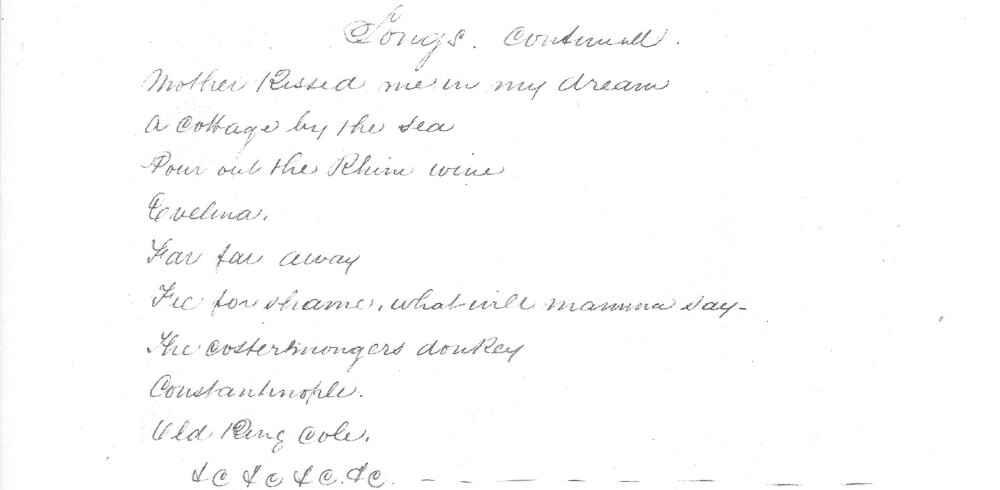 Songs. Continued.
Mother Kissed me in my dream
A Cottage by the Sea
Pour out the Rhine wine
Evelina.
Far far away
Fie for shame, what will mamma say-
The costermongers donkey
Constantinople.
Old King Cole.
&C &C &C. &C. - - — — — — —